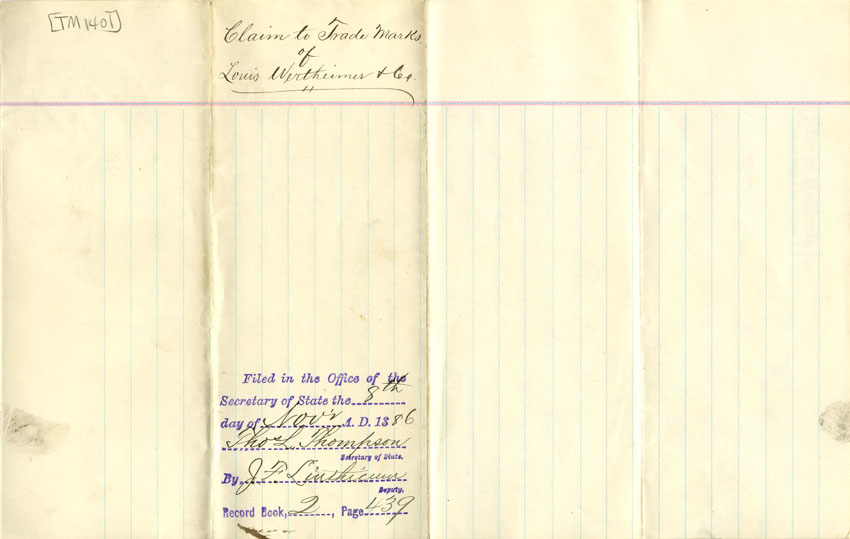 [TM 1401]
Claim to Trade Marks
of
Louis Wertheimer & Co.
Filed in the Office of the
Secretary of State the 8th
day of Nov'r A. D. 1886
Thos L. Thompson
Secretary of State.
By J F Linthicum
Deputy.
Record Book, 2, Page 439